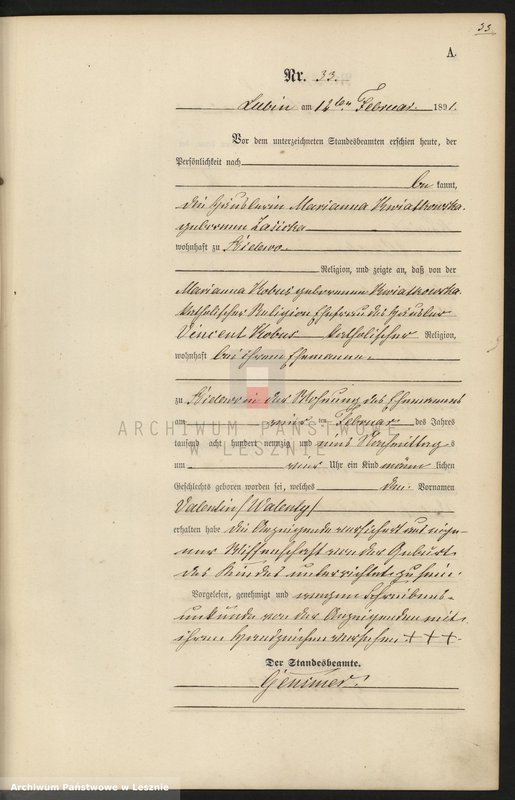 33.
A.
Nr. 33.
Lubin am 12ten Februar 1891.
Vor dem unterzeichneten Standesbeamten erschien heute, der
Persönlichkeit nach
be kannt,
die Häuslerin Marianna Kwiatkowska
geborene Zasicka
wohnhaft zu Kidewo
Religion, und zeigte an, daß von der
Marianna Kobus geborenen Kwiatkowska
katholischer Religion Ehefrau des Häusler
Vincent Kobus katholischer Religion,
wohnhaft bei ihrem Ehemanne
zu Kidewo in der Wohnung des Ehemannes
am ten Februar des Jahres
tausend acht hundert neunzig und eins Nachmittag s
um Uhr ein Kind männ lichen
Geschlechts geboren worden sei, welches den Vornamen
Valentin /Walenty/
erhalten habe die Anzeigende versichert aus eige-
ner Wissenschaft von der Geburt
des Kindes unterrichtet zu sein.
Vorgelesen, genehmigt und wegen Schreibens-
unkunde von der Anzeigenden mit
ihrem Handzeichen versehen +++
Der Standesbeamte.
ARCHIWUM PAŃSTWOWE
W LESZNIE
Archiwum Państwowe w Lesznie